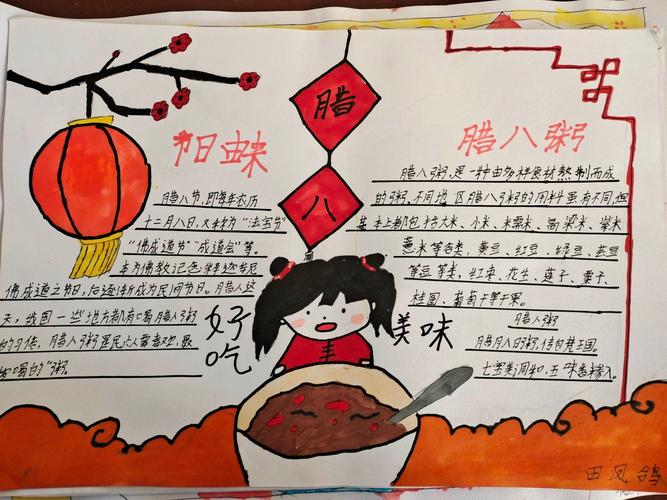 腊
八
节日由来
腊八节,即每年农历
十二月八日,又称为“法宝节”
“佛成道节”“成道会”等。
本为佛教纪念释迦牟尼
佛成道之节日,后逐渐成为民间节日。腊八这
天,我国一些地方都有喝腊八粥
的习俗,腊八粥是人喜欢,最
喝的“粥
好吃
美味
腊八粥
腊八粥,是一种由多样食材熬制而成
的粥,不同地区腊八粥的用料虽有不同,但
基本上都包括大米、小米、糯米、高粱米、紫米
薏米等谷类,黄豆、红豆、绿豆、芸豆
等豆类,红枣、花生、莲子、栗子、
桂圆、葡萄干等干果。
腊八粥
腊月八日粥,传自梵王国。
七宝美调和,五味香糁入。
田凤鸽